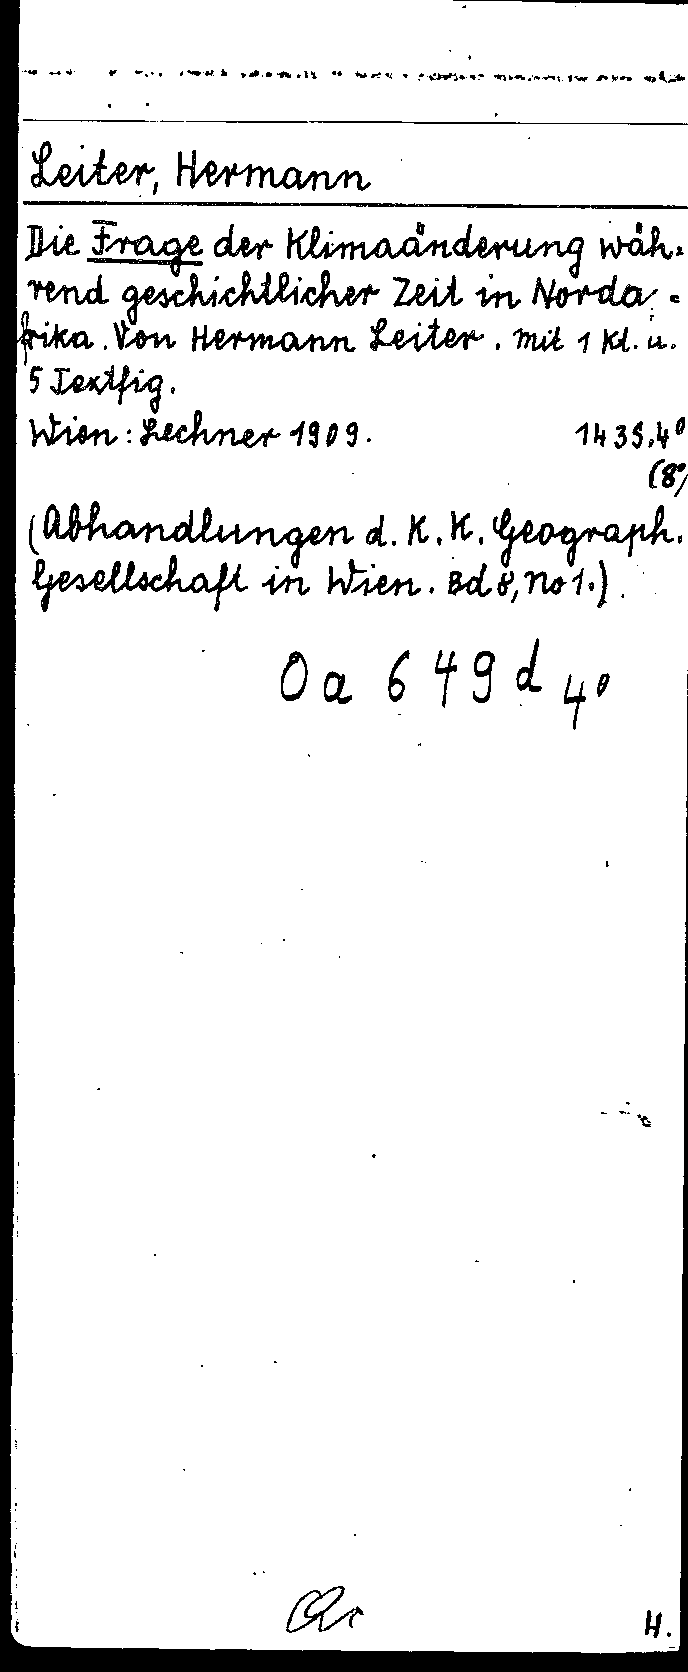 Leiter, Hermann
Die Frage der Klimaänderung wäh-
rend geschichtlicher Zeit in Norda-
frika. Von Hermann Leiter. Mit 1 Kt. u.
5 Textfig.
Wien: Lechner 1909. 143 S. 4°
(8°)
(Abhandlungen d. K. K. Geograph.
Gesellschaft in Wien. Bd 8, No 1.)
Oa 649d 4°
H.